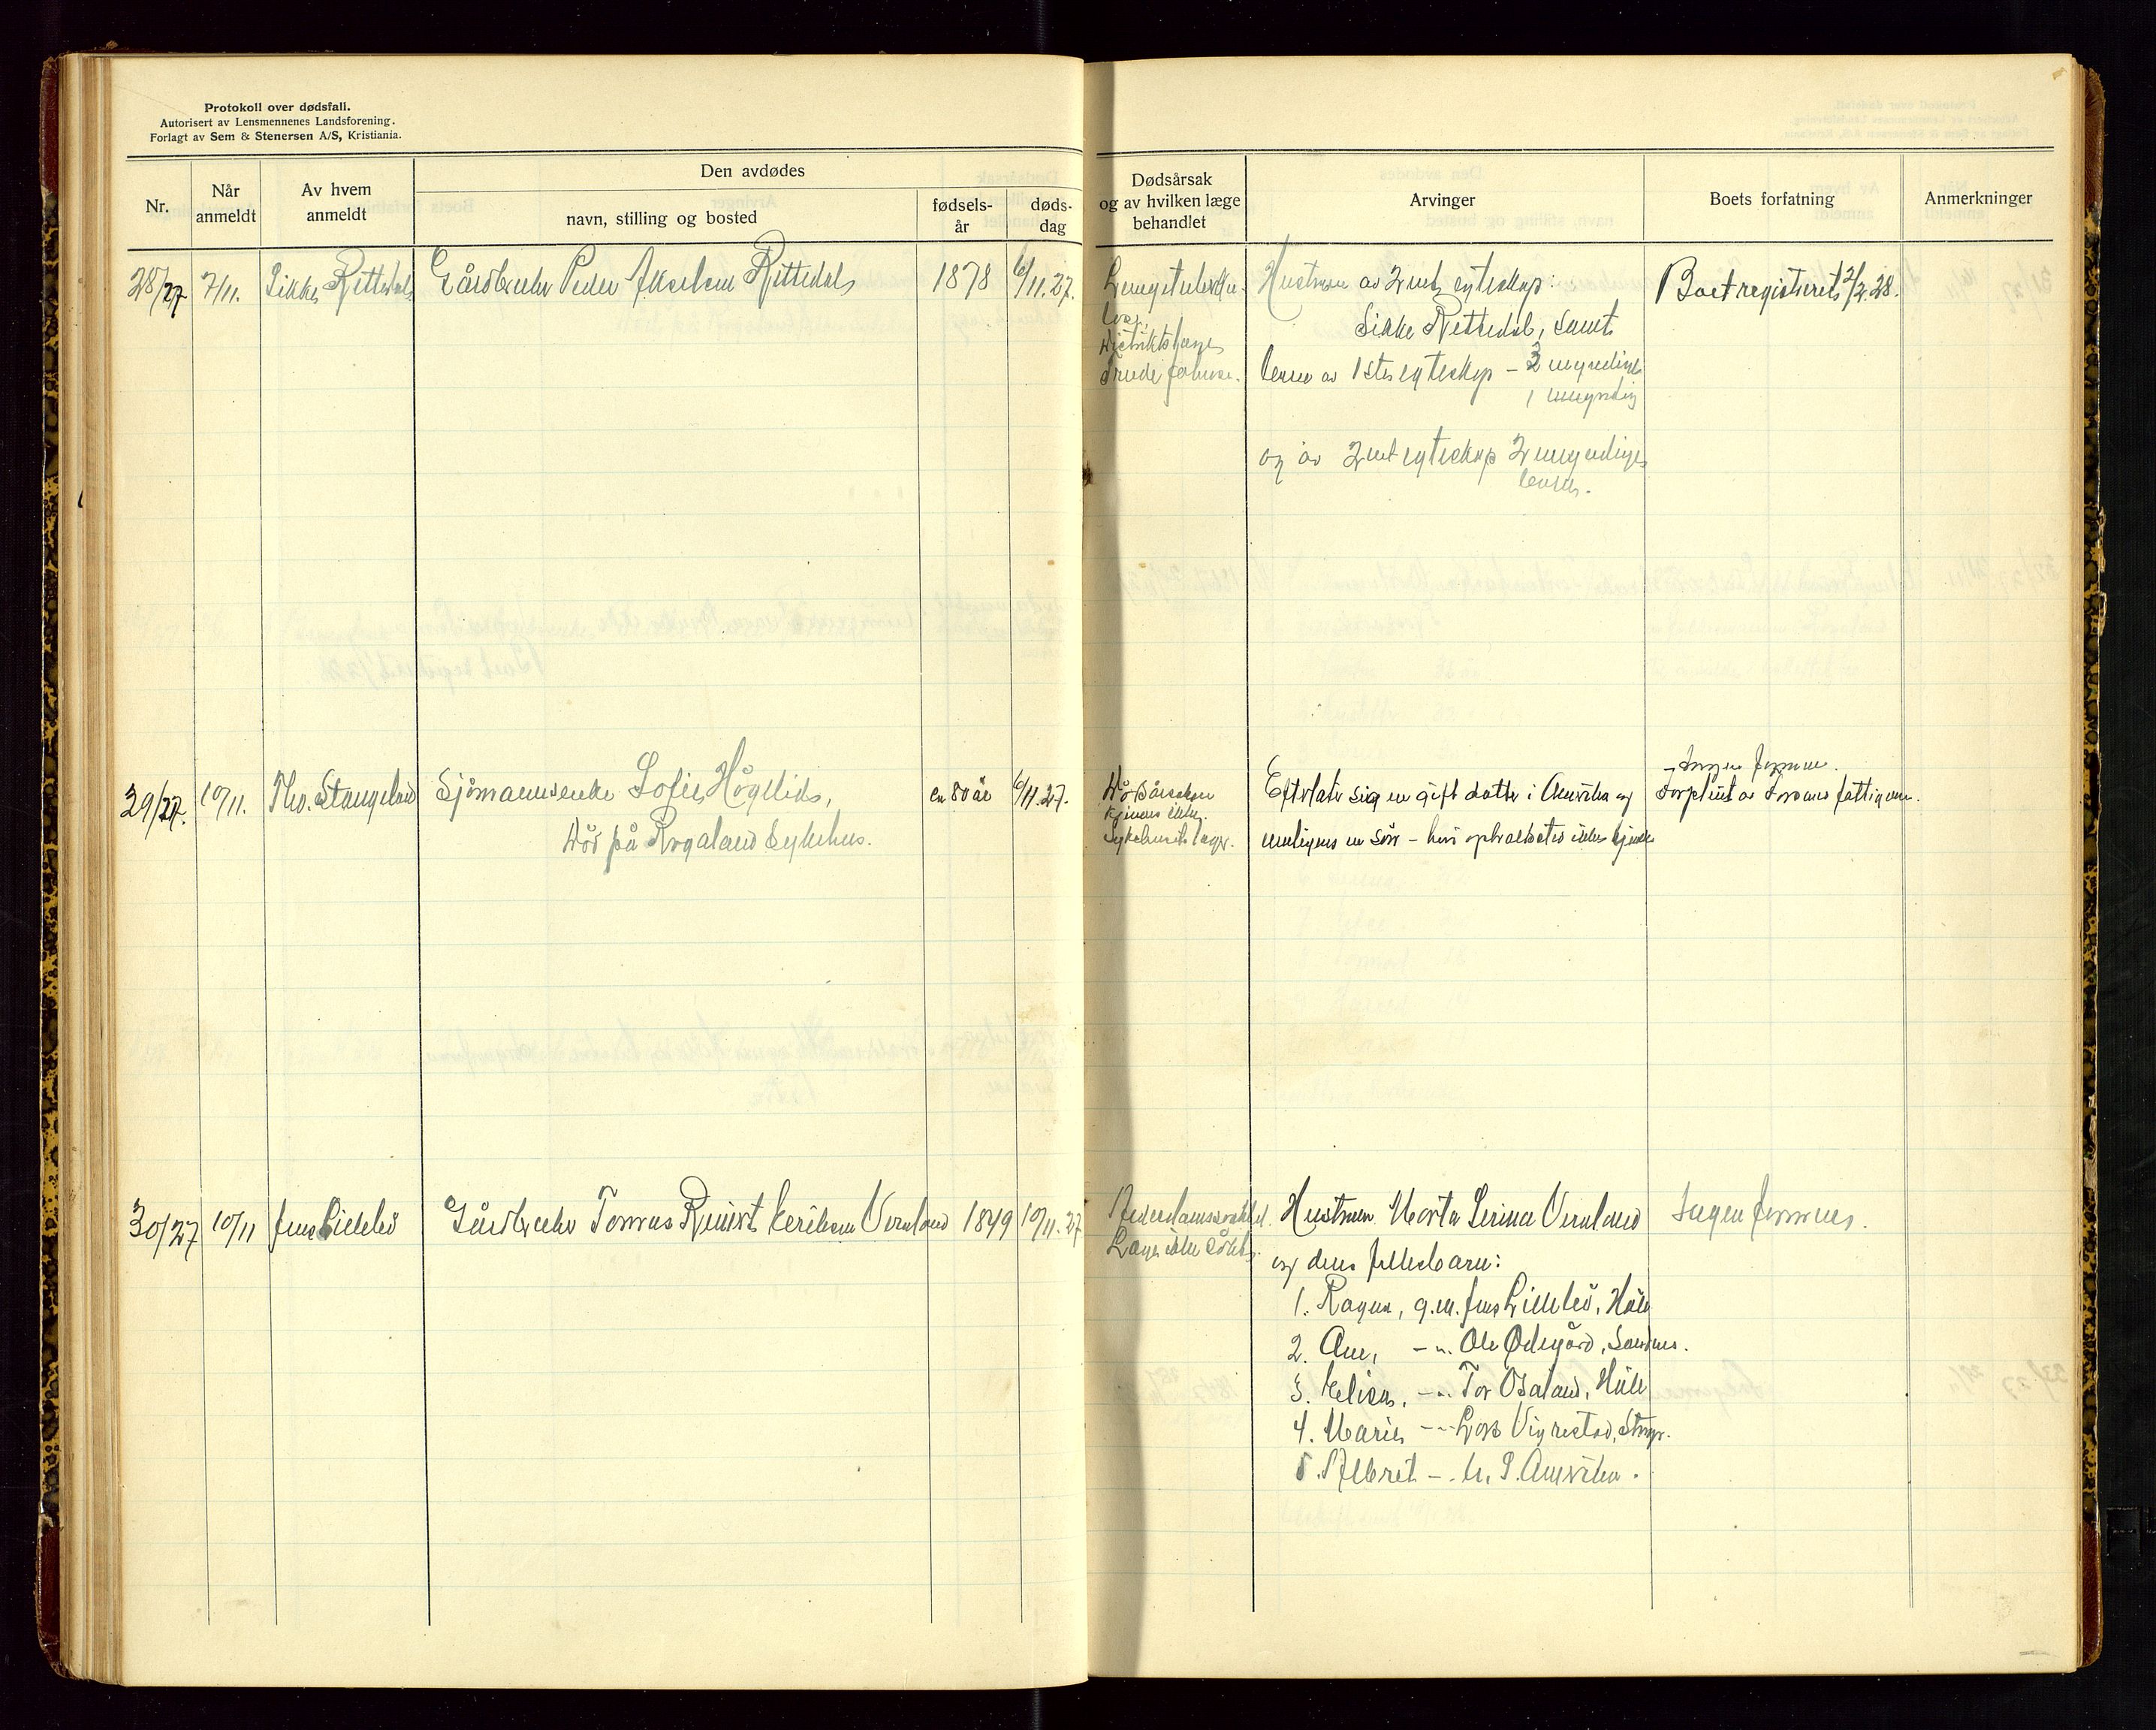 Protokoll over dødsfall.
Autorisert av Lensmennenes Landsforening.
Forlagt av Sem & Stenersen A/S, Kristiania.
Nr.
Når anmeldt
Av hvem anmeldt
Den avdødes
navn, stilling og bosted
fødsels-år
døds-dag
Dødsårsak og av hvilken læge behandlet
Arvinger
Boets forfatning
Anmerkninger
28/27 7/11. Sikke Rettedal Gårdbruker Peder Akselsen Rettedal 1878 6/11.27.
Lungetuberku-
lose,
Distriktslæge
Hustruen av 2net egteskap:
Sikke Rettedal, samt
barn av 1ste egteskap - 3 myndige
1 umyndig
og av 2net egteskap 2 umyndige
barn.
Boet registrert 2/2.28.
29/27. 10/11. Tho. Stangeland Sjømannsenke Sofie Høgelid,
død på Rogaland Sykehus.
ca 80 år 6/11.27.
Dødsårsaken
kjennes ikke.
Sykehusets læge.
Efterlater sig en gift datter i Amerika og
muligens en sønn - hvis opholdssted ikke kjendes
- Ingen formue.
Forpleiet av Forsand fattigvesen.
30/27 10/11 Jens Lillebø Gårdbruker Tomas Reinert Eriksen Vernland 1849 10/11.27
Alderdomssvakhed.
Læge ikke søkt.
Hustruen Marta Serina Vernland
og deres fellesbarn:
1. Ragna, g.m. Jens Lillebø, Høle
2. Ane, - " - Ole Ødegård, Sandnes.
3. Elisa, - " - Tor Osaland, Høle
4. Marie - " - Lars Vigrestad, Stvgr.
5. Albert - U. S. Amerika.
Ingen formue.